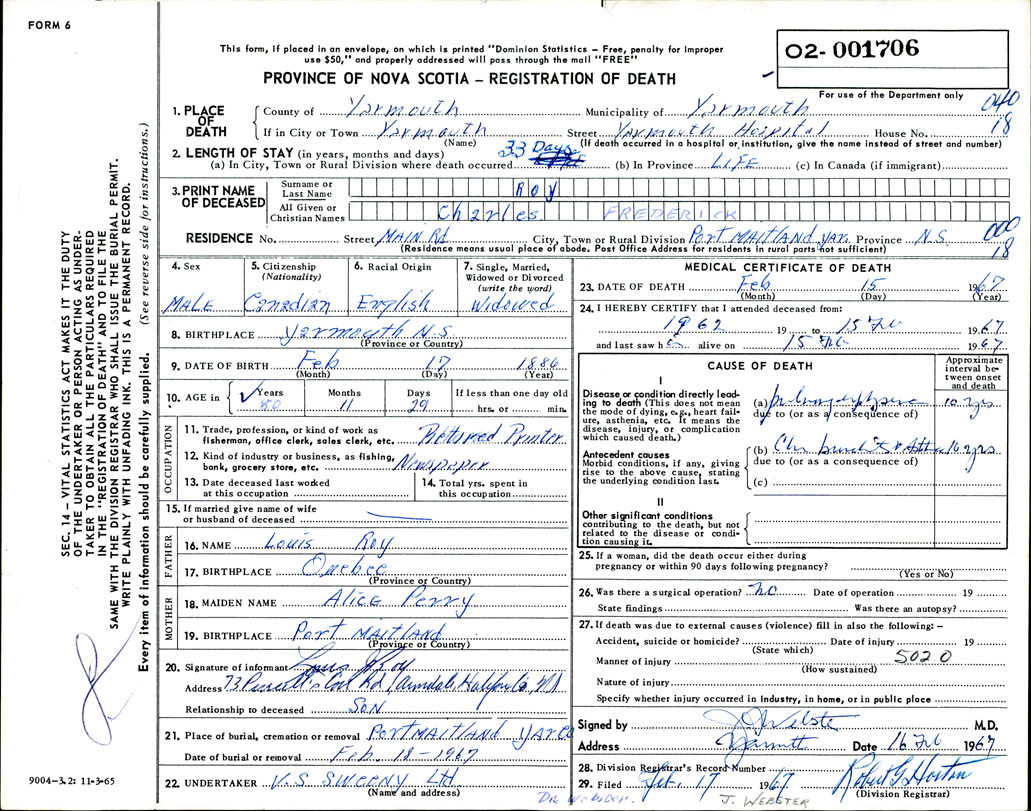 FORM 6
This form, if placed in an envelope, on which is printed "Dominion Statistics – Free, penalty for improper
use $50," and properly addressed will pass through the mail "FREE"
02- 001706
PROVINCE OF NOVA SCOTIA – REGISTRATION OF DEATH
For use of the Department only
1. PLACE OF DEATH
County of Yarmouth Municipality of Yarmouth 040
If in City or Town Yarmouth Street Yarmouth Hospital House No. 18
(Name) (If death occurred in a hospital or institution, give the name instead of street and number)
2. LENGTH OF STAY (in years, months and days) 33 Days
(a) In City, Town or Rural Division where death occurred (b) In Province LIFE (c) In Canada (if immigrant)
3. PRINT NAME OF DECEASED
Surname or Last Name ROY
All Given or Christian Names Charles FREDERICK
RESIDENCE No. Street MAIN Rd City, Town or Rural Division PORT MAITLAND Yar. Province N.S. 000
(Residence means usual place of abode. Post Office Address for residents in rural parts not sufficient) 18
4. Sex MALE
5. Citizenship (Nationality) Canadian
6. Racial Origin English
7. Single, Married, Widowed or Divorced (write the word) Widowed
8. BIRTHPLACE Yarmouth N.S.
(Province or Country)
9. DATE OF BIRTH Feb 17 1886
(Month) (Day) (Year)
10. AGE in Years Months Days If less than one day old
80 11 29 hrs. or min.
OCCUPATION
11. Trade, profession, or kind of work as fisherman, office clerk, sales clerk, etc. Retired Printer
12. Kind of industry or business, as fishing, bank, grocery store, etc. Newspaper
13. Date deceased last worked at this occupation
14. Total yrs. spent in this occupation
15. If married give name of wife or husband of deceased
FATHER
16. NAME Louis Roy
17. BIRTHPLACE Quebec
(Province or Country)
MOTHER
18. MAIDEN NAME Alice Perry
19. BIRTHPLACE Port MAITLAND
(Province or Country)
20. Signature of informant Louis J Roy
Address 73 Purcell's Cove Rd Armdale Halifax Co, NS
Relationship to deceased SON
21. Place of burial, cremation or removal PORT MAITLAND YAR CO
Date of burial or removal Feb. 18-1967
22. UNDERTAKER V.S SWEENY Ltd
(Name and address)
MEDICAL CERTIFICATE OF DEATH
23. DATE OF DEATH Feb 15 1967
(Month) (Day) (Year)
24. I HEREBY CERTIFY that I attended deceased from:
1962 19 to 15 Feb 1967
and last saw h alive on 15 Feb 1967
CAUSE OF DEATH
Approximate interval between onset and death
I
Disease or condition directly leading to death (This does not mean the mode of dying, e.g., heart failure, asthenia, etc. It means the disease, injury, or complication which caused death.)
(a) 10 yrs
due to (or as a consequence of)
Antecedent causes
Morbid conditions, if any, giving rise to the above cause, stating the underlying condition last.
(b) 10 yrs
due to (or as a consequence of)
(c)
II
Other significant conditions
contributing to the death, but not related to the disease or condition causing it.
25. If a woman, did the death occur either during
pregnancy or within 90 days following pregnancy?
(Yes or No)
26. Was there a surgical operation? no Date of operation 19
State findings Was there an autopsy?
27. If death was due to external causes (violence) fill in also the following: –
Accident, suicide or homicide? Date of injury 19
(State which)
Manner of injury 5020
(How sustained)
Nature of injury
Specify whether injury occurred in industry, in home, or in public place
Signed by J Webster M.D.
Address Yarmouth Date 16 Feb 1967
28. Division Registrar's Record Number
29. Filed Feb. 17 1967 Robert G Horton
(Division Registrar)
Dr Webster. J. WEBSTER
SEC. 14 – VITAL STATISTICS ACT MAKES IT THE DUTY
OF THE UNDERTAKER OR PERSON ACTING AS UNDER-
TAKER TO OBTAIN ALL THE PARTICULARS REQUIRED
IN THE "REGISTRATION OF DEATH" AND TO FILE THE
SAME WITH THE DIVISION REGISTRAR WHO SHALL ISSUE THE BURIAL PERMIT.
WRITE PLAINLY WITH UNFADING INK. THIS IS A PERMANENT RECORD.
Every item of information should be carefully supplied. (See reverse side for instructions.)
9004-3.2: 11-3-65